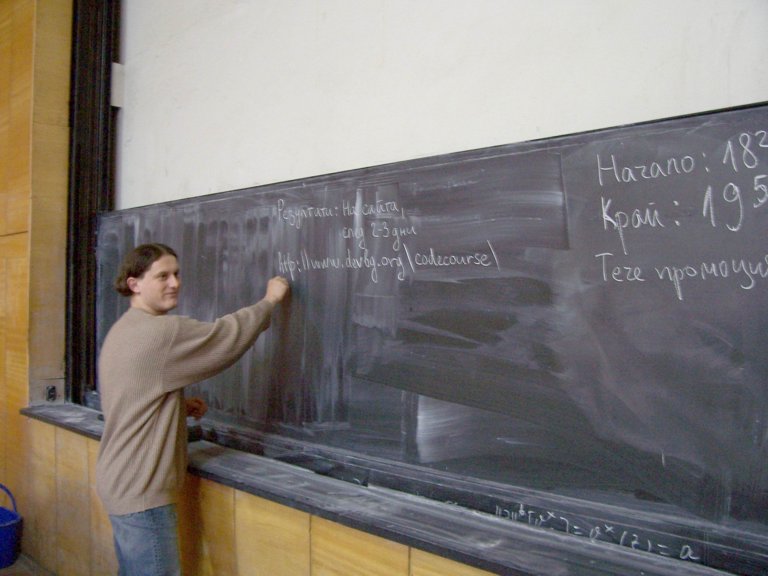 Резултати: На сайта,
след 2-3 дни
http://www.devbg.org\codecourse\
Начало: 18
Край: 19 5
Тече промоция
= a